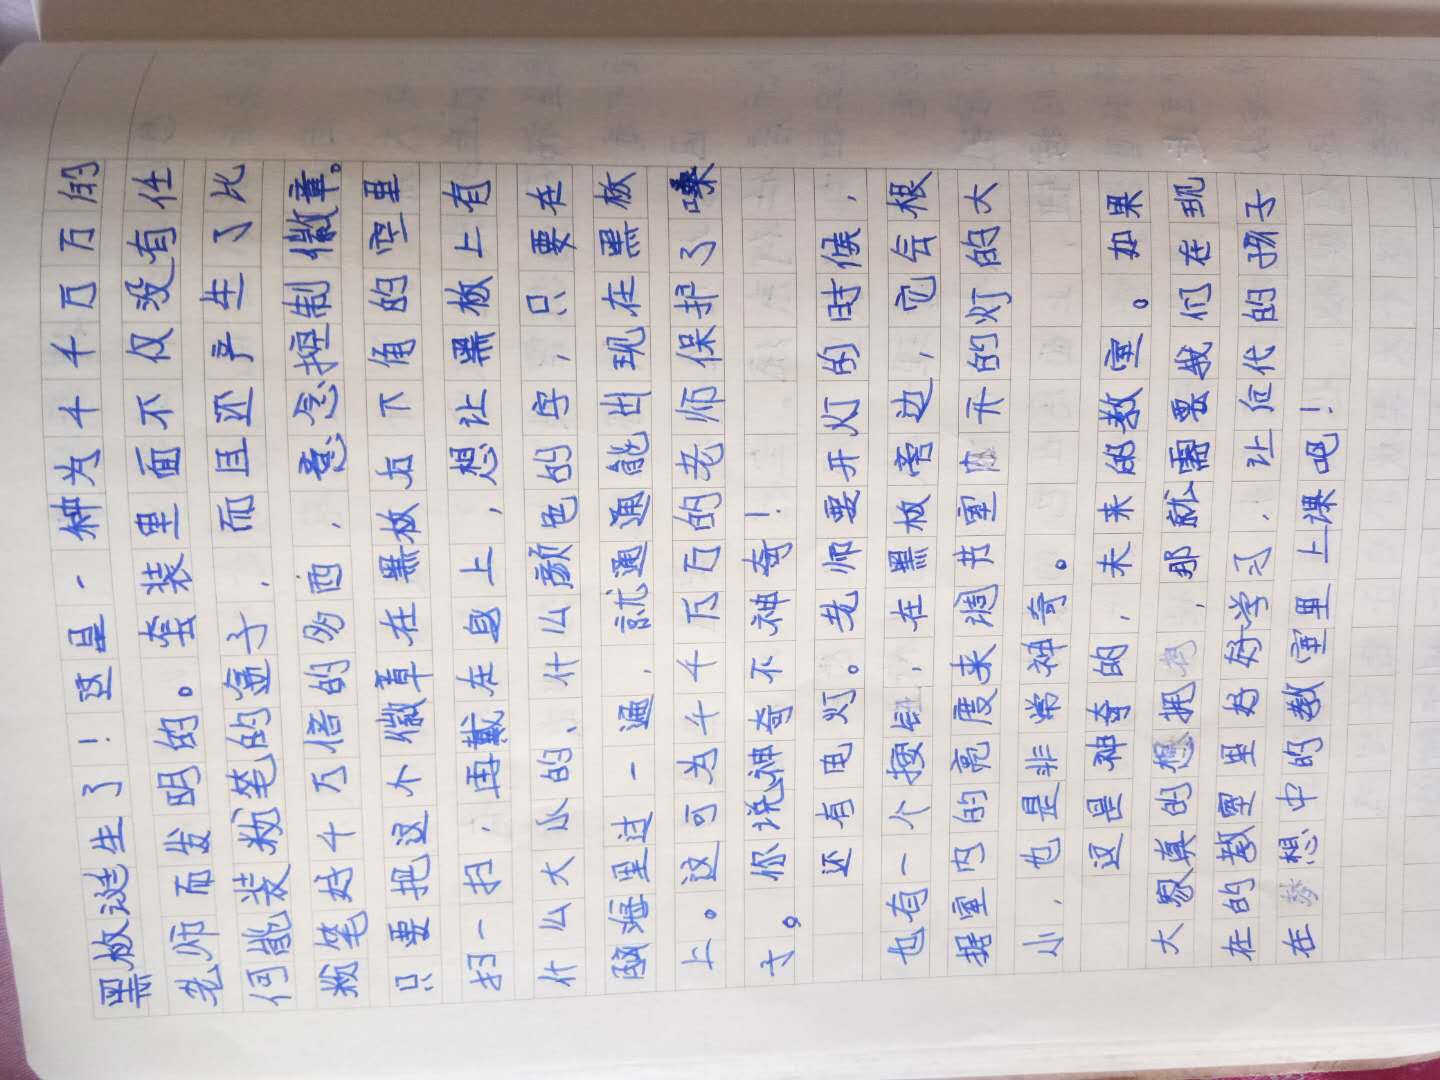 黑板诞生了！这是一种为千千万万的
老师而发明的。套装里面不仅没有任
何能装粉笔的盒子，而且还产生了比
粉笔好千万倍的东西，意念控制徽章。
只要把这个徽章在黑板右下角的空里
扫一扫，再戴在身上，想让黑板上有
什么大小的、什么颜色的字，只要在
脑海里过一遍，就通通能出现在黑板
上。这可为千千万万的老师保护了嗓
子。你说神奇不神奇！
还有电灯。老师要开灯的时候，
也有一个按钮，在黑板旁边，它会根
据室内的亮度来调节室内开的灯的大
小，也是非常神奇。
这是神奇的，未来的教室。如果
大家真的想拥，那就需要我们在现
在的教室里好好学习，让后代的孩子
在梦想中的教室里上课吧！